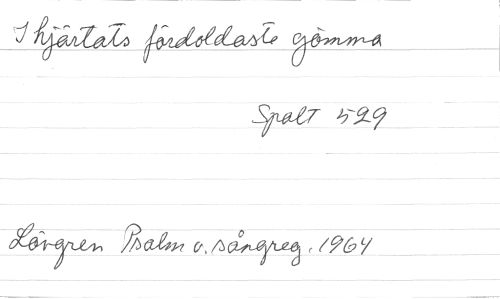 I hjärtats fördoldaste gömma
Spalt 529
Lövgren Psalm o. sångreg. 1964